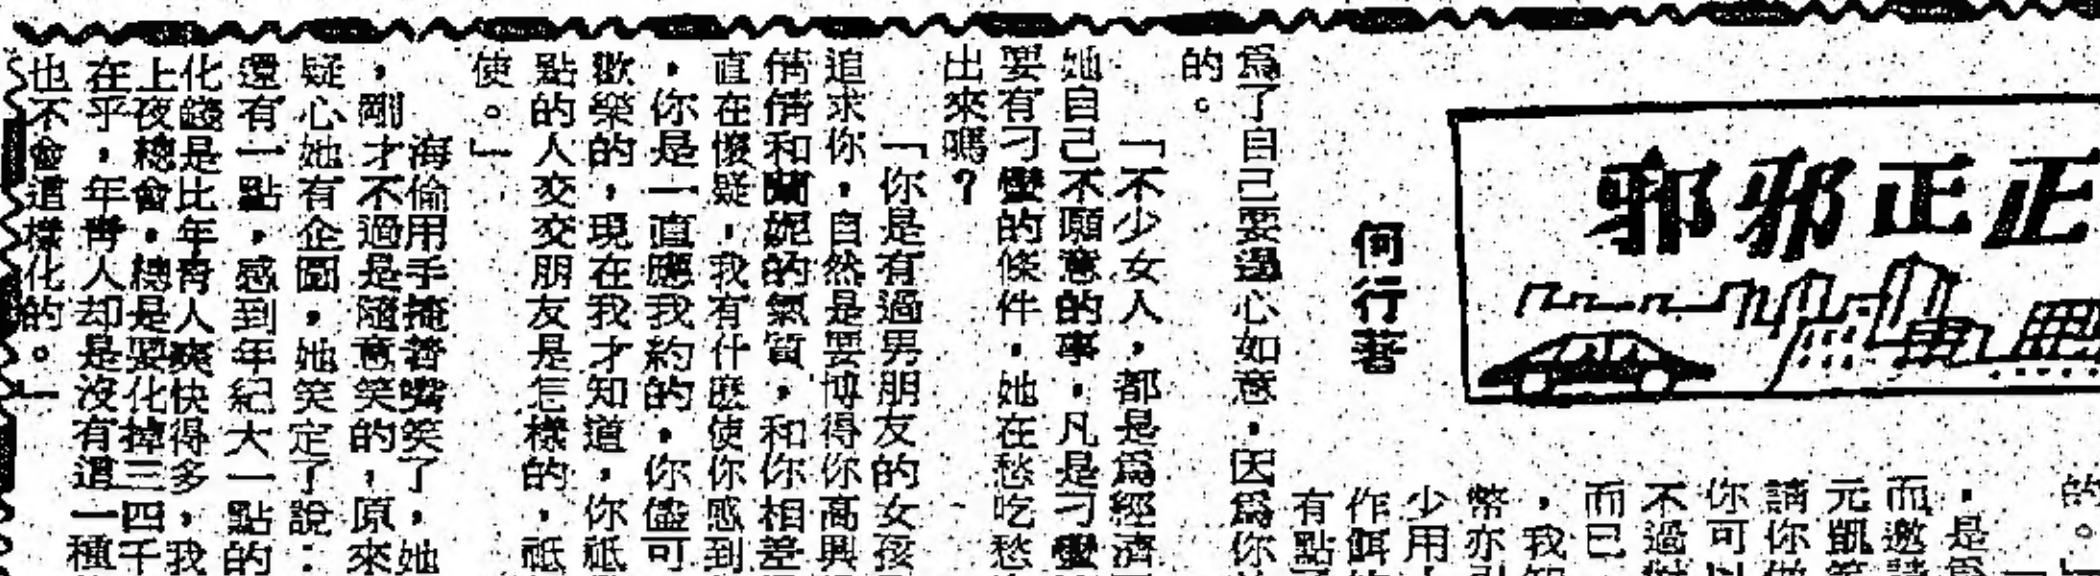 正正邪邪
何行著
的。
，是
而邀
元
請你
你可以
不過
而已
，我
幣亦
少用
作餌
有點
爲了自己要過心如意，因爲你
的。
「不少女人，都是爲經濟
她自己不願意的事，凡是刁蠻
要有刁蠻的條件，她在愁吃愁
出來嗎？
「你是有過男朋友的女孩
追求你，自然是要博得你高興
倩倩和蘭妮的氣質，和你相差
直在懷疑，我有什麽使你感到
，你是一直應我約的，你儘可
歡樂的，現在我才知道，你祗
點的人交交朋友是怎樣的，祗
使。」
海倫用手掩着嘴笑了，她
，剛才不過是隨意笑的，原來
疑心她有企圖，她笑定了說：
還有一點，感到年紀大一點的
化錢是比年青人爽快得多，我
上夜總會，總是要化掉三四千
在乎，年青人却是沒有這一種
也不會這樣化的。」